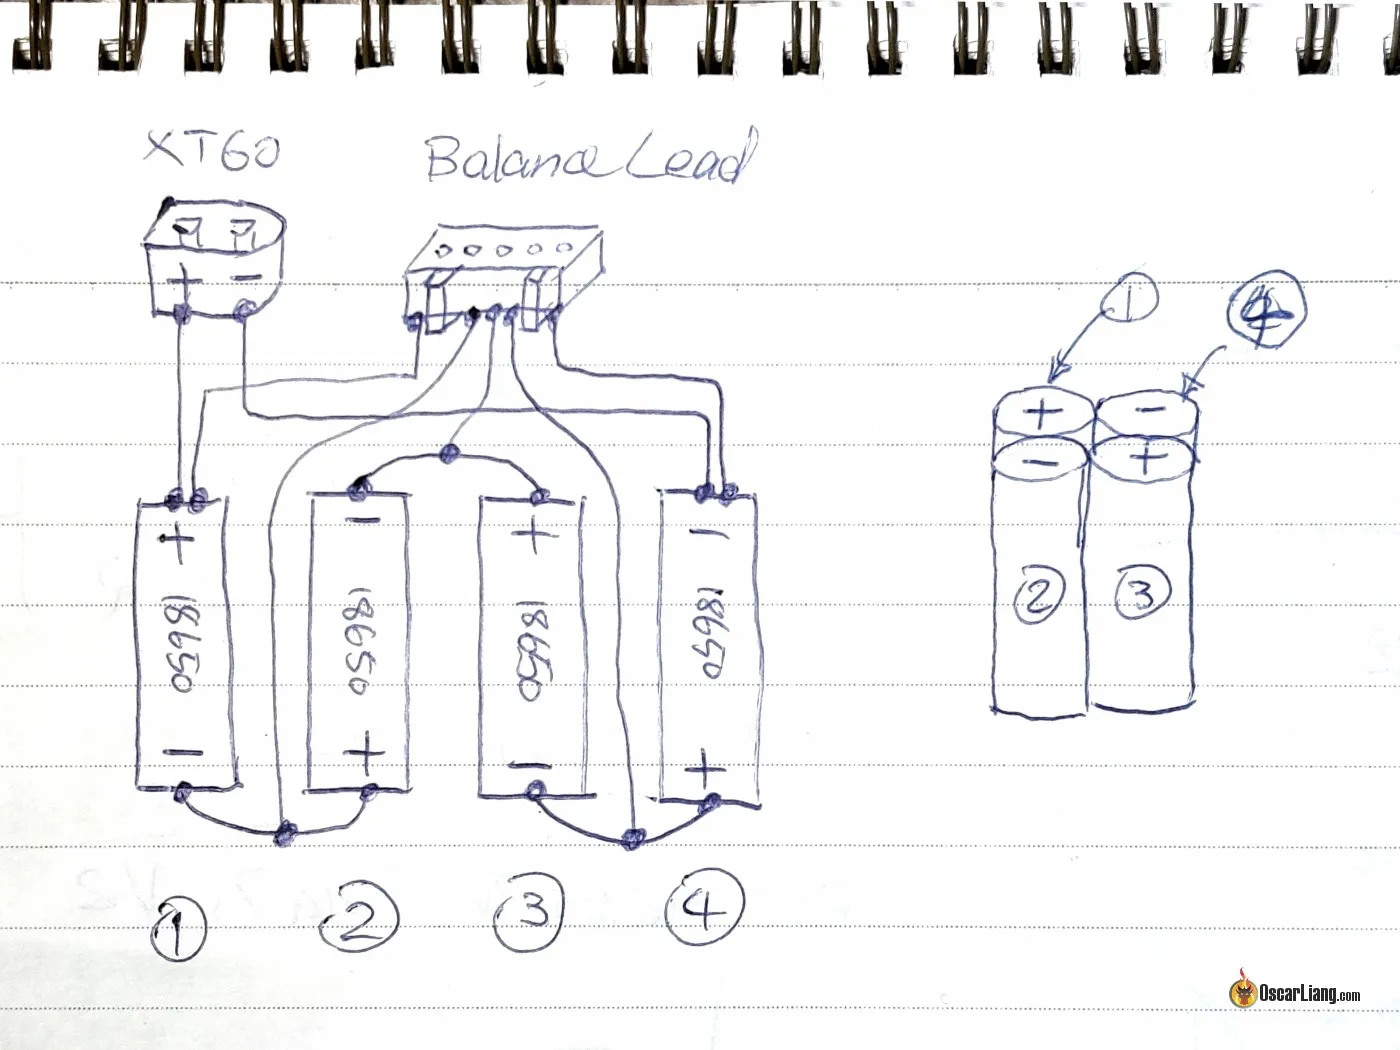 XT60
Balance Lead
+ −
① ④
+ −
− +
+ − + −
18650 18650 18650 18650
② ③
− + − +
① ② ③ ④
OscarLiang.com